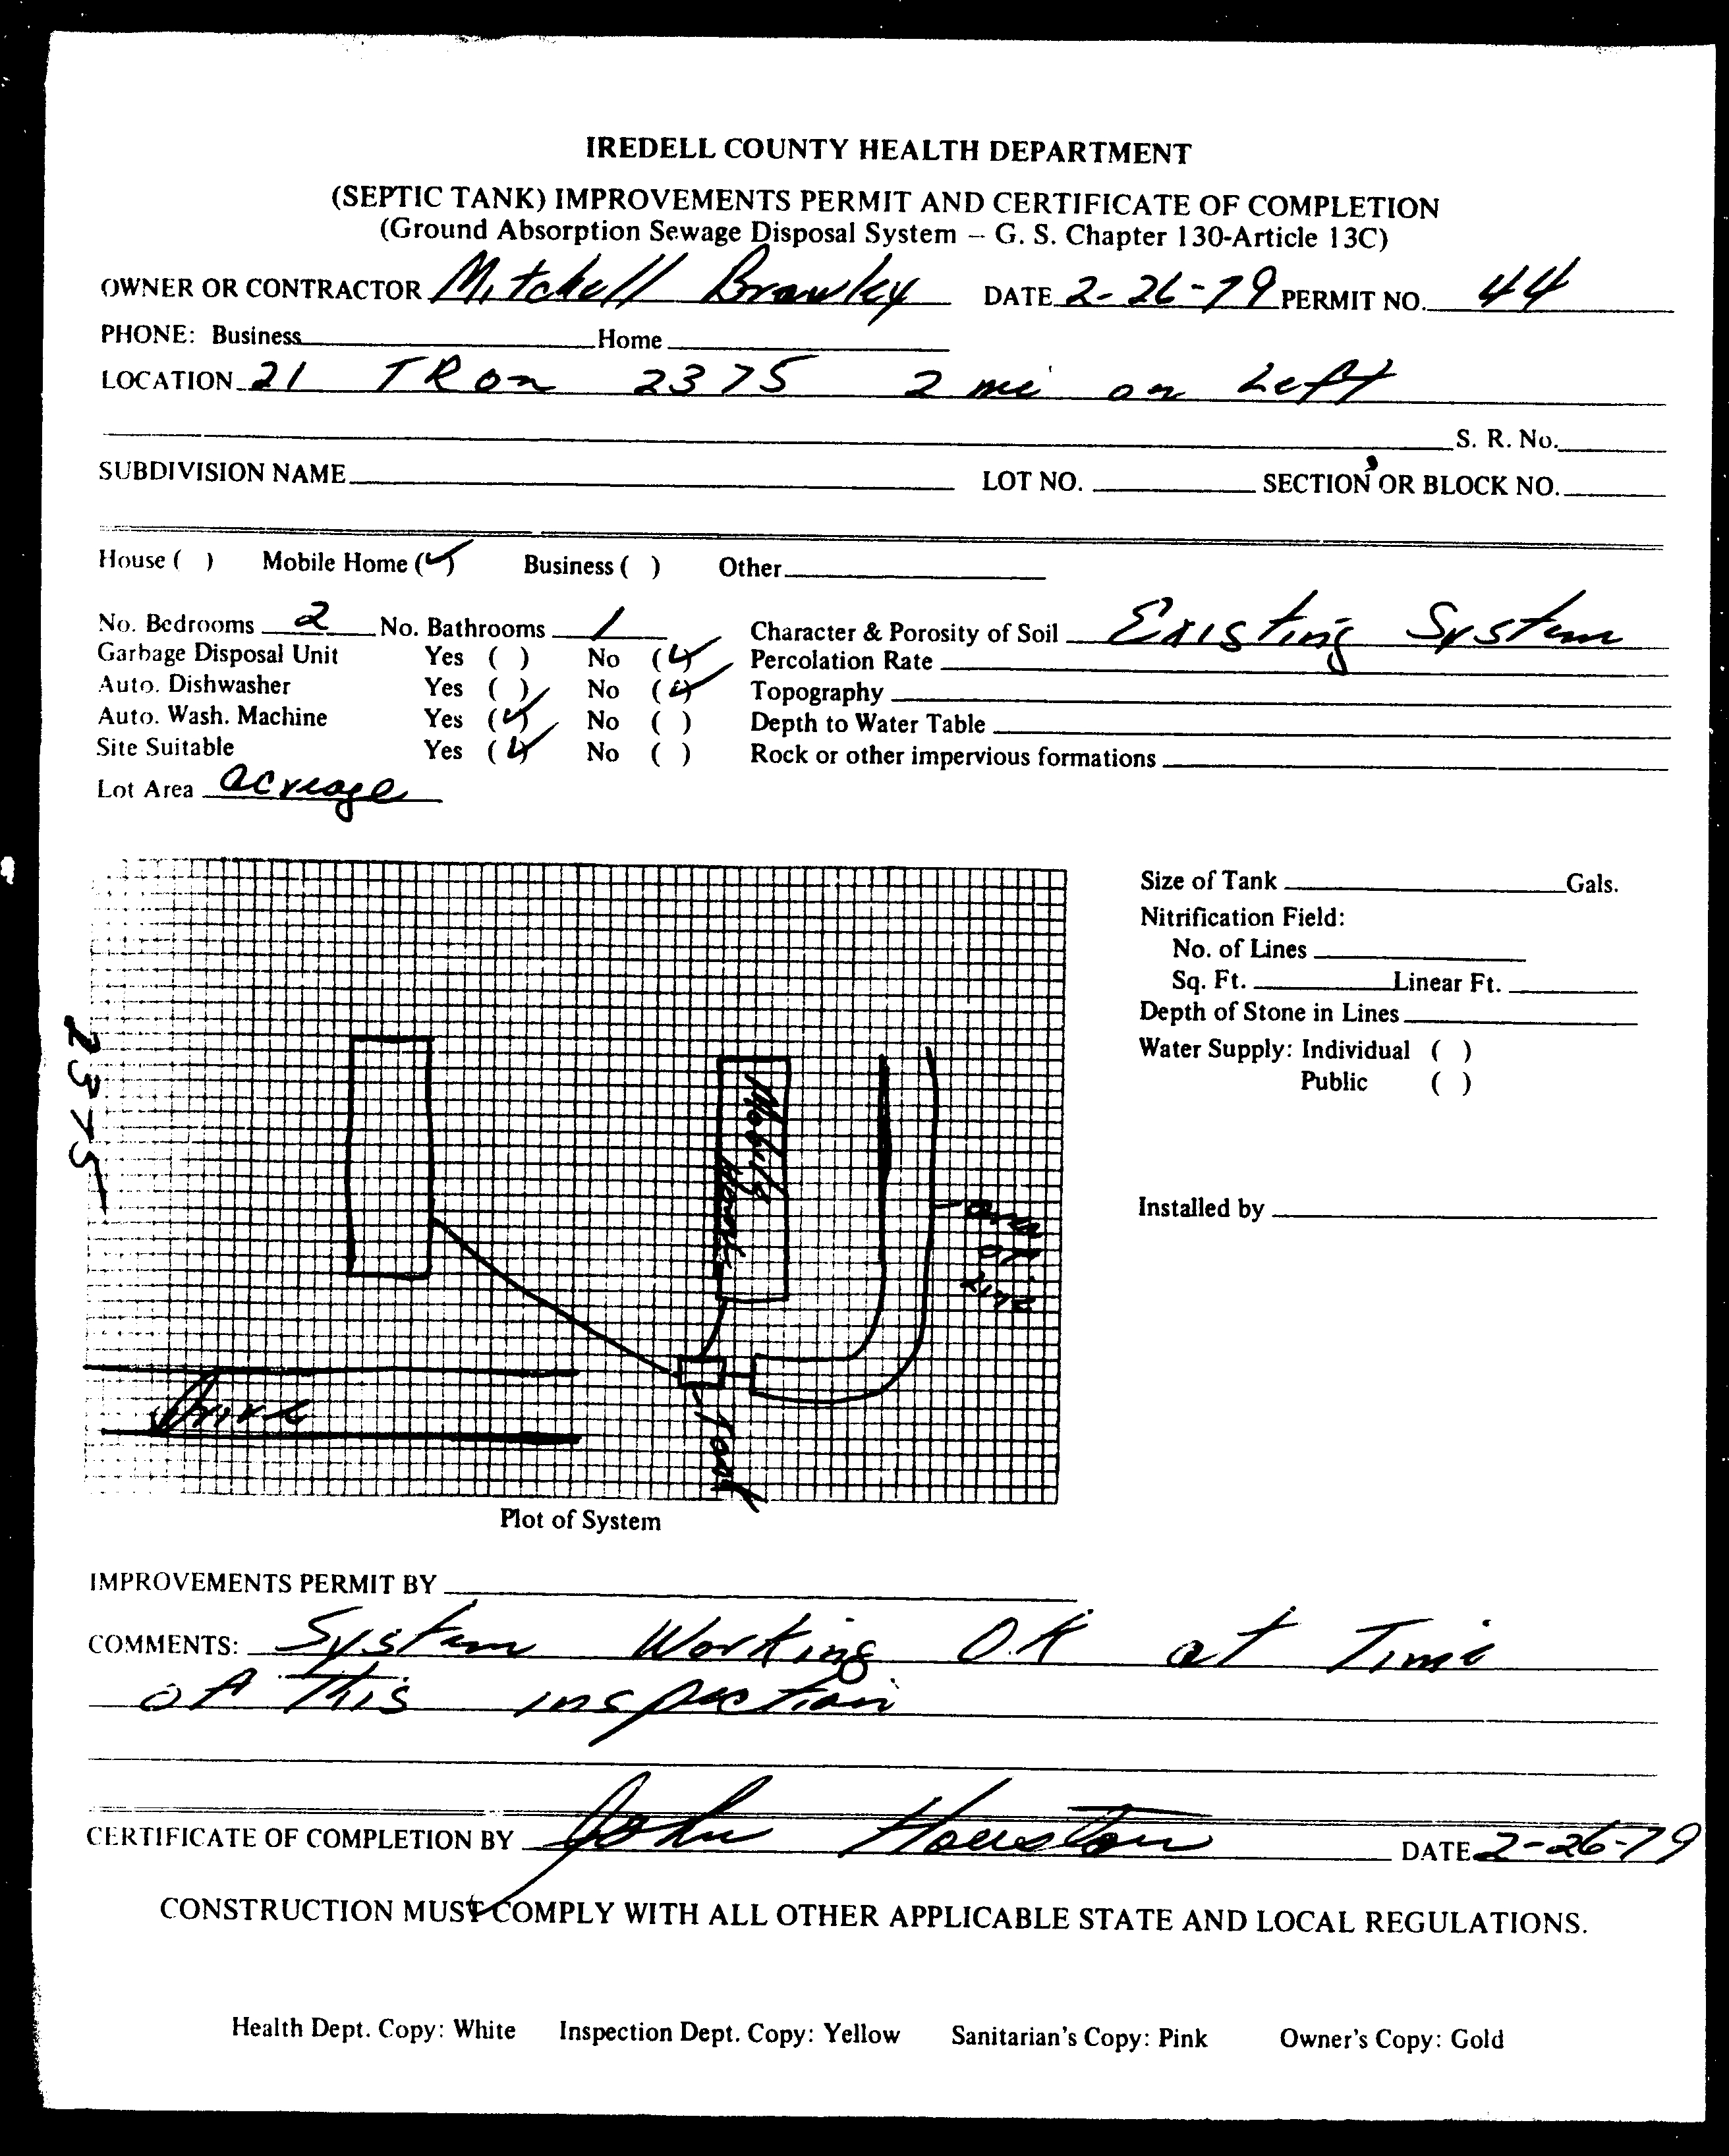 IREDELL COUNTY HEALTH DEPARTMENT
(SEPTIC TANK) IMPROVEMENTS PERMIT AND CERTIFICATE OF COMPLETION
(Ground Absorption Sewage Disposal System – G. S. Chapter 130-Article 13C)
OWNER OR CONTRACTOR Mitchell Brawley DATE 2-26-79 PERMIT NO. 44
PHONE: Business Home
LOCATION 21 TR on 2375 2 mi on Left
S. R. No.
SUBDIVISION NAME LOT NO. SECTION OR BLOCK NO.
House ( ) Mobile Home (✓) Business ( ) Other
No. Bedrooms 2 No. Bathrooms 1 Character & Porosity of Soil Existing System
Garbage Disposal Unit Yes ( ) No (✓) Percolation Rate
Auto. Dishwasher Yes ( ) No (✓) Topography
Auto. Wash. Machine Yes (✓) No ( ) Depth to Water Table
Site Suitable Yes (✓) No ( ) Rock or other impervious formations
Lot Area acreage
Size of Tank Gals.
Nitrification Field:
No. of Lines
Sq. Ft. Linear Ft.
Depth of Stone in Lines
Water Supply: Individual ( )
Public ( )
Installed by
2375
Mobile Home
Drive
Tank
Plot of System
IMPROVEMENTS PERMIT BY
COMMENTS: System Working O.K at Time
of This inspection
CERTIFICATE OF COMPLETION BY John Houston DATE 2-26-79
CONSTRUCTION MUST COMPLY WITH ALL OTHER APPLICABLE STATE AND LOCAL REGULATIONS.
Health Dept. Copy: White Inspection Dept. Copy: Yellow Sanitarian's Copy: Pink Owner's Copy: Gold